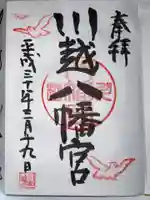 奉拝
川越八幡宮
平成三十年三月九日